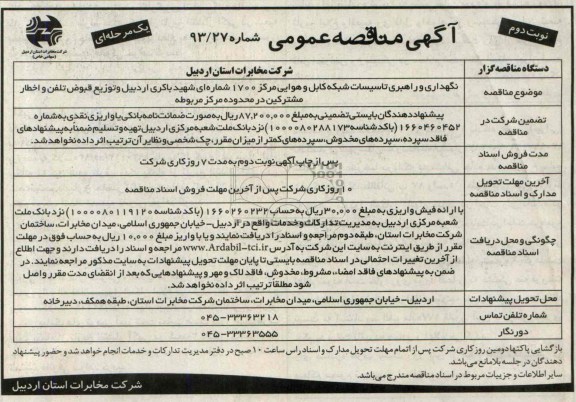 نوبت دوم
آگهی مناقصه عمومی شماره ۹۳/۲۷
یک مرحله‌ای
شرکت مخابرات استان اردبیل
(سهامی خاص)
دستگاه مناقصه گزار
شرکت مخابرات استان اردبیل
موضوع مناقصه
نگهداری و راهبری تاسیسات شبکه کابل و هوایی مرکز ۱۷۰۰ شماره‌ای شهید باکری اردبیل و توزیع قبوض تلفن و اخطار
مشترکین در محدوده مرکز مربوطه
تضمین شرکت در
مناقصه
پیشنهاددهندگان بایستی تضمینی به مبلغ ۸۷,۲۰۰,۰۰۰ ریال به صورت ضمانت نامه بانکی یا واریزی نقدی به شماره
۱۶۶۰۴۶۰۴۵۲ (با کد شناسه ۱۰۰۰۰۸۰۲۸۸۱۷۳) نزد بانک ملت شعبه مرکزی اردبیل تهیه و تسلیم ضمنا به پیشنهادهای
فاقد سپرده، سپرده‌های مخدوش، سپرده‌های کمتر از میزان مقرر، چک شخصی و نظایر آن ترتیب اثر داده نخواهد شد.
مدت فروش اسناد
مناقصه
پس از چاپ آگهی نوبت دوم به مدت ۷ روز کاری شرکت
آخرین مهلت تحویل
مدارک و اسناد مناقصه
۱۰ روز کاری شرکت پس از آخرین مهلت فروش اسناد مناقصه
چگونگی و محل دریافت
اسناد مناقصه
با ارائه فیش واریزی به مبلغ ۳۰,۰۰۰ ریال به حساب ۱۶۶۰۲۶۰۲۳۲ (با کد شناسه ۱۰۰۰۰۸۰۱۱۹۱۲۰) نزد بانک ملت
شعبه مرکزی اردبیل به مدیریت تدارکات و خدمات واقع در اردبیل- خیابان جمهوری اسلامی، میدان مخابرات، ساختمان
شرکت مخابرات استان، طبقه دوم مراجعه و اسناد را دریافت نمایند و یا با واریز مبلغ ۱۰,۰۰۰ ریال به حساب فوق در مهلت
مقرر از طریق اینترنت به سایت این شرکت به آدرس www.Ardabil-tci.ir مراجعه و اسناد را دریافت دارند و جهت اطلاع
از آخرین تغییرات احتمالی در اسناد مناقصه بایستی تا پایان مهلت تحویل پیشنهادات به سایت مذکور مراجعه نمایند. در
ضمن به پیشنهادهای فاقد امضاء، مشروط، مخدوش، فاقد لاک و مهر و پیشنهادهایی که بعد از انقضای مدت مقرر واصل
شود مطلقا ترتیب اثر داده نخواهد شد.
محل تحویل پیشنهادات
اردبیل- خیابان جمهوری اسلامی، میدان مخابرات، ساختمان شرکت مخابرات استان، طبقه همکف، دبیرخانه
شماره تلفن تماس
۰۴۵-۳۳۳۶۳۲۱۸
دورنگار
۰۴۵-۳۳۳۶۳۵۵۵
بازگشایی پاکتها دومین روز کاری شرکت پس از اتمام مهلت تحویل مدارک و اسناد راس ساعت ۱۰ صبح در دفتر مدیریت تدارکات و خدمات انجام خواهد شد و حضور پیشنهاد
دهندگان در جلسه بلامانع می‌باشد.
سایر اطلاعات و جزییات مربوط در اسناد مناقصه مندرج می‌باشد.
شرکت مخابرات استان اردبیل